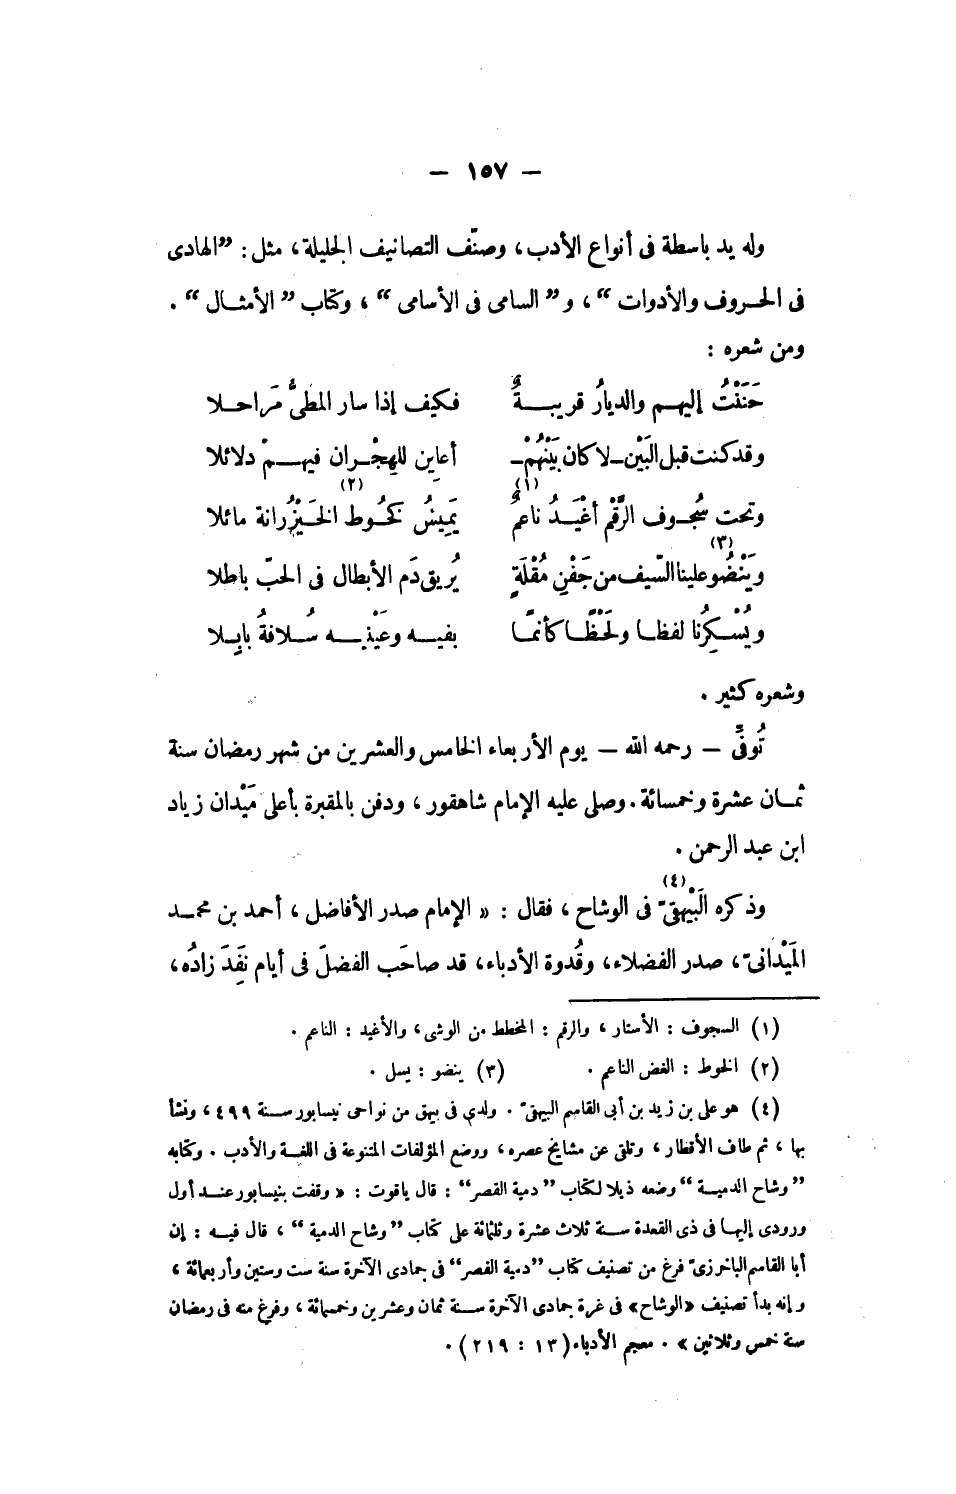 — ١٥٧ —
وله يد باسطة فى أنواع الأدب، وصنّف التصانيف الجليلة، مثل: ”الهادى
فى الحـروف والأدوات“، و”السامى فى الأسامى“، وكتاب ”الأمثـال“.
ومن شعره :
حَنَنْتُ إليهـم والديارُ قريبـةٌ فكيف إذا سار المطىُّ مَراحـلا
وقد كنت قبل البَيْن ـ لا كان بَيْنُهُمْ ـ أعاين للهِجْـران فيهـمْ دلائلا
وتحت سُجـوف الرَّقْم أغْيَـدُ ناعمٌ (١) يَمِيسُ كَخُـوط الخَيْزُرانة مائلا (٢)
ويَنْضُو علينا السّيف من جَفْنِ مُقْلَةٍ (٣) يُريق دَم الأبطال فى الحبّ باطلا
ويُسْـكِرُنا لفظـا ولَحْظًـا كأنمّـا بفيـه وعَيْنَيْـه سُـلافةُ بابِـلا
وشعره كثير .
تُوفِّىَ — رحمه الله — يوم الأربعاء الخامس والعشرين من شهر رمضان سنة
ثمـان عشرة وخمسائة. وصلى عليه الإمام شاهقور، ودفن بالمقبرة بأعلى مَيْدان زياد
ابن عبد الرحمن .
وذكره البَيْهقىّ (٤) فى الوشاح، فقال : «الإمام صدر الأفاضل، أحمد بن محمـد
المَيْدانىّ، صدر الفضلاء، وقُدوة الأدباء، قد صاحَب الفضلَ فى أيام نَفَدَ زادُه،
(١) السجوف : الأستار، والرقم : المخطط من الوشى، والأغيد : الناعم .
(٢) الخوط : الغض الناعم . (٣) ينضو : يسل .
(٤) هو على بن زيد بن أبى القاسم البيهقىّ . ولد فى بيهق من نواحى نيسابور سـنة ٤٩٩، ونشأ
بها، ثم طاف الأقطار، وتلقى عن مشايخ عصره، ووضع المؤلفات المتنوعة فى اللغـة والأدب . وكتابه
”وشاح الدميـة“ وضعه ذيلا لكتاب ”دمية القصر“ : قال ياقوت : «وقفت بنيسابور عنـد أول
ورودى إليهـا فى ذى القعدة سـنة ثلاث عشرة وثلثمائة على كتاب ”وشاح الدمية“، قال فيـه : إن
أبا القاسم الباخرزىّ فرغ من تصنيف كتاب ”دمية القصر“ فى جمادى الآخرة سنة ست وستين وأربعمائة،
وإنه بدأ تصنيف «الوشاح» فى غرة جمادى الآخرة سـنة ثمان وعشرين وخمسمائة، وفرغ منه فى رمضان
سنة خمس وثلاثين» . معجم الأدباء (١٣ : ٢١٩) .